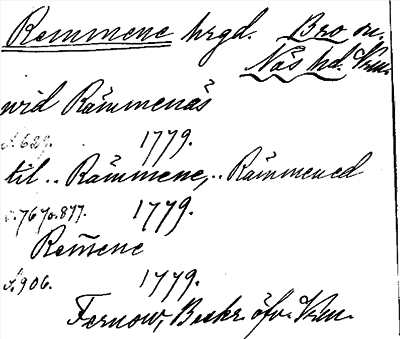 Remmene hrgd. Bro sn.
Näs hd. Vrm.
vid Rämmenäs
s. 629. 1779.
til .. Rämmene, .. Rämmened
s. 767 o. 877. 1779.
Rem̄ene
s. 906. 1779.
Fernow, Beskr. öfv. Vrm.